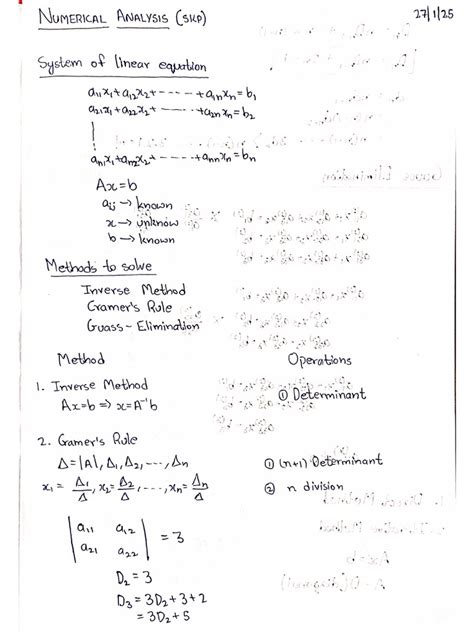 NUMERICAL ANALYSIS (SKP) 27/1/25
System of linear equation
a₁₁x₁+a₁₂x₂+-----+a₁nxn=b₁
a₂₁x₁+a₂₂x₂+-----+a₂nxn=b₂
an₁x₁+an₂x₂+-----+annxn=bn
Ax=b
aij → known
x → unknow
b → known
Methods to solve
Inverse Method
Cramer's Rule
Guass-Elimination
Method Operations
1. Inverse Method
Ax=b ⇒ x=A⁻¹b ① Determinant
2. Cramer's Rule
Δ=|A|, Δ₁, Δ₂, ---, Δn ① (n+1) Determinant
x₁ = Δ₁/Δ, x₂= Δ₂/Δ, ----, xn= Δn/Δ ② n division
|a₁₁ a₁₂|
|a₂₁ a₂₂| = 3
D₂ = 3
D₃ = 3D₂+3+2
= 3D₂+5